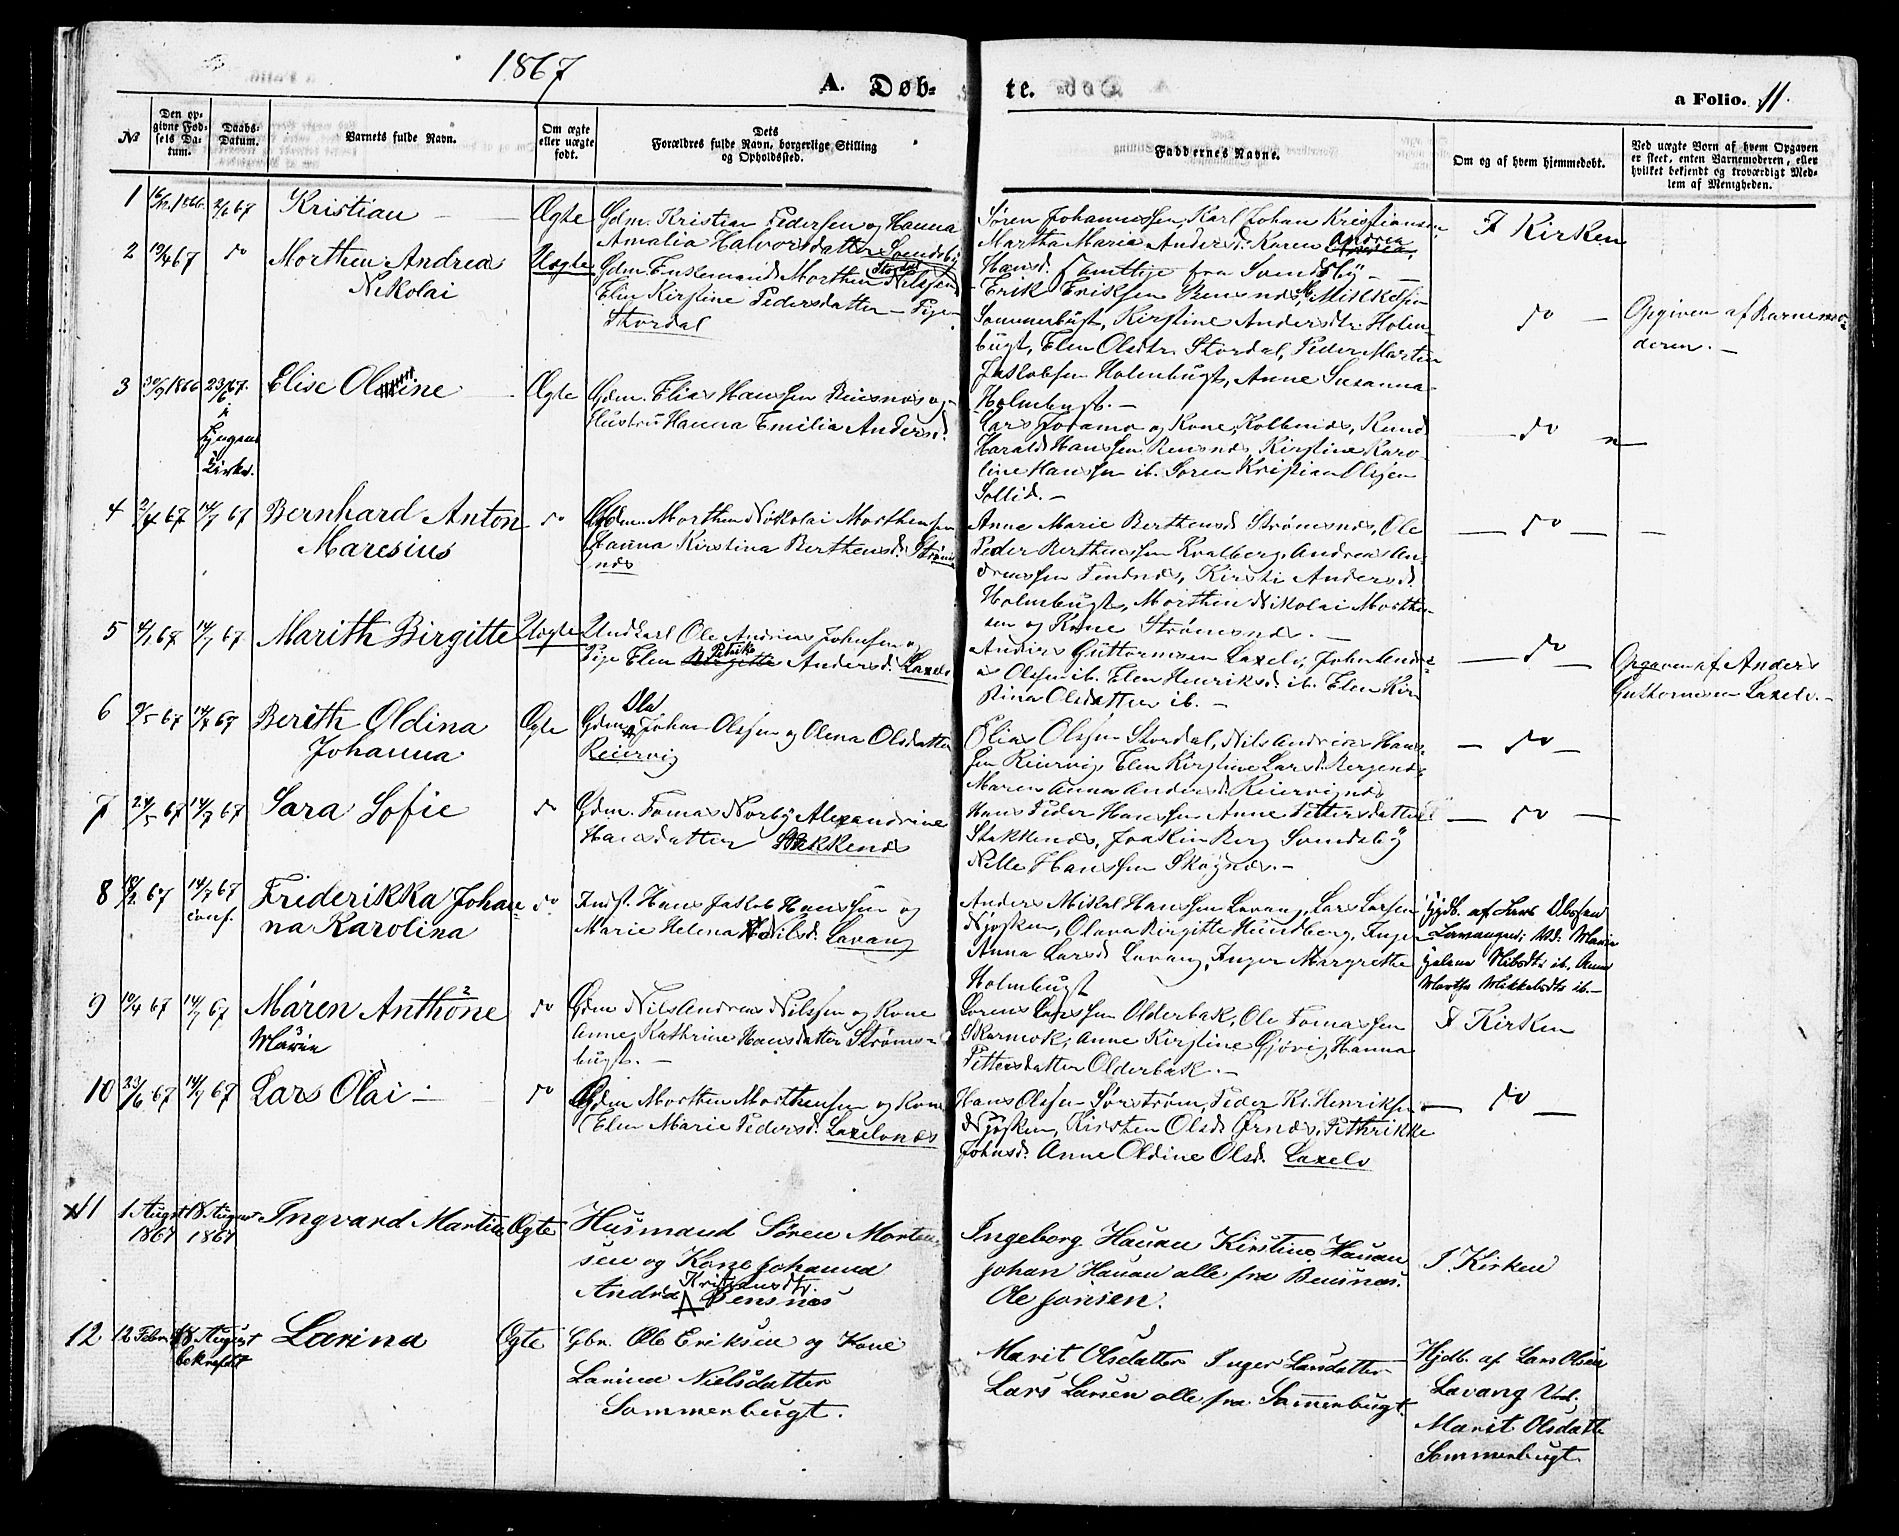 1867
A. Døb-
te.
a Folio. 11.
No
Den op-
givne Fød-
sels Da-
tum.
Daabs-
Datum.
Barnets fulde Navn.
Om ægte
eller uægte
født.
Dets
Forældres fulde Navn, borgerlige Stilling
og Opholdssted.
Faddernes Navne.
Om og af hvem hjemmedøbt.
Ved uægte Børn af hvem Opgaven
er skeet, enten Barnemoderen, eller
hvilket bekjendt og troværdigt Med-
lem af Menigheden.
1
16/12 1866
2/6 67
Kristian
Ægte
Gdm. Kristian Pedersen og Hanna
Amalia Halvorsdatter Sandsby
Søren Johannessen, Karl Johan Kristiansen,
Martha Maria Andersd. Karen Andrea
Hansd. samtlige fra Sandsby
I Kirken
2
19/4 67
do
Morthen Andrea
Nikolai
Uægte
Gdm. Enkemand Morthen Nilsen Stordal
Elen Kirstine Pedersdatter - Pige
Stordal
Erik Eriksen Bensnæs, M. Mikkelsen
Sommerbugt, Kirstine Andersdtr. Holm-
bugt, Elen Olsdtr. Stordal, Peder Martin
Jakobsen Holmbugt, Anne Susanna
Holmbugt. -
do
Opgiven af Barnemo-
deren. -
3
30/9 1866
23/6 67.
i
Lyngens
Kirke.
Elise Oline
Ægte
Gdm. Elias Hanssen Bensnæs og
Hustru Hanna Emilia Andersd.
Lars Josamo og Kone, Kolbnæs, Knud
Harald Hanssen Rensnæs, Kirstine Karo-
line Hanssen ib. Søren Kristian Olsen
Sollid. -
do
4
2/4 67
14/7 67
Bernhard Anton
Maresius
do
Gdm. Morthen Nikolai Morthensen
Hanna Kirstina Berthensd. Strøms-
næs
Anne Marie Berthensd. Strømsnæs, Ole
Peder Berthensen Kvalberg, Andreas An-
dreassen Tindnæs, Kirsti Andersd.
Holmbugt, Morthen Nikolai Morthen-
sen og Kone Strømsnæs. -
do
5
4/1 67
14/7 67
Marith Birgitte
Uægte
Undkarl Ole Andreas Johnsen og
Pige Elen Petrike Andersd. Laxelv
Anders Guttormsen Laxelv, John Andre-
as Olsen ib. Elen Henriksd. ib. Elen Kir-
stina Olsdatter ib. -
do
Opgaven af Anders
Guttormsen Laxelv. -
6
9/5 67
14/7 67
Berith Oldina
Johanna
Ægte
Gdm. Ole Johan Olssen og Olena Olsdatter
Reiervig
Elias Olssen Stordal, Nils Andreas Hans-
sen Reiervig, Elen Kirstine Larsd. Bergenæs
Maren Anna Andersd. Reiervignæs
do
7
24/5 67
14/7 67
Sara Sofie
do
Gdm. Tomas Norby Alexandrine
Hansdatter Stakkenæs
Hans Peder Hanssen Anne Pettersdatter
Stakkenæs, Joakim Berg Sandsby
Nille Hanssen Skognæs. -
do
8
18/2 67
14/7 67
conf.
Friderikka Johan-
na Karolina
do
Inds. Hans Jakob Hanssen og
Marie Helena Nilsd. Lavang
Anders Mikal Hanssen Lavang, Lars Larsen
Njosken, Olava Birgitte Heindberg, Inger
Anna Larsd. Lavang, Inger Margrethe
Holmbugt
Hjdb. af Lars Olssen
Lavangnes; Vid: Marie
Helena Nilsdtr ib. Anne
Martha Mikkelsdtr ib. -
9
10/4 67
14/7 67
Maren Anthone
Maria
do
Gdm Nils Andreas Nilssen og Kone
Anne Kathrine Hansdatter Strøms-
bugt. -
Sørens Larssen Olderbak, Ole Tomassen
Skarmok, Anne Kirstine Gjøvig, Hanna
Pettersdatter Olderbak. -
I Kirken
10
23/6 67
14/7 67
Lars Olai -
do
Gdm Morthen Morthensen og Kone
Elen Marie Pedersd. Laxelvnæs
Hans Olssen Sørstrøm, Peder Kr. Henriksen
Njosken, Kirsten Olsd. Ørnæs, Pethrikke
Johnsd. Anne Oldine Olsd. Laxelv
do
11
1 August
1867
18 August
1867
Ingvard Martin
Ægte
Husmand Søren Morten-
sen og Kone Johanna
Andrea Kristiansdtr. Bensnæs
Ingeborg Hauan Kirstine Hauan
Johan Hauan alle fra Bensnæs.
Ole Jonsen.
I. Kirken
12
12 Febr.
18 August
bekræftet
Larina
Ægte
Gbr. Ole Eriksen og Kone
Larina Nielsdatter
Sommerbugt.
Marit Olsdatter Inger Larsdatter
Lars Larsen alle fra Sommerbugt.
Hjdb. af Lars Olsen
Lavang Vid.
Marit Olsdatte
Sommerbugt.